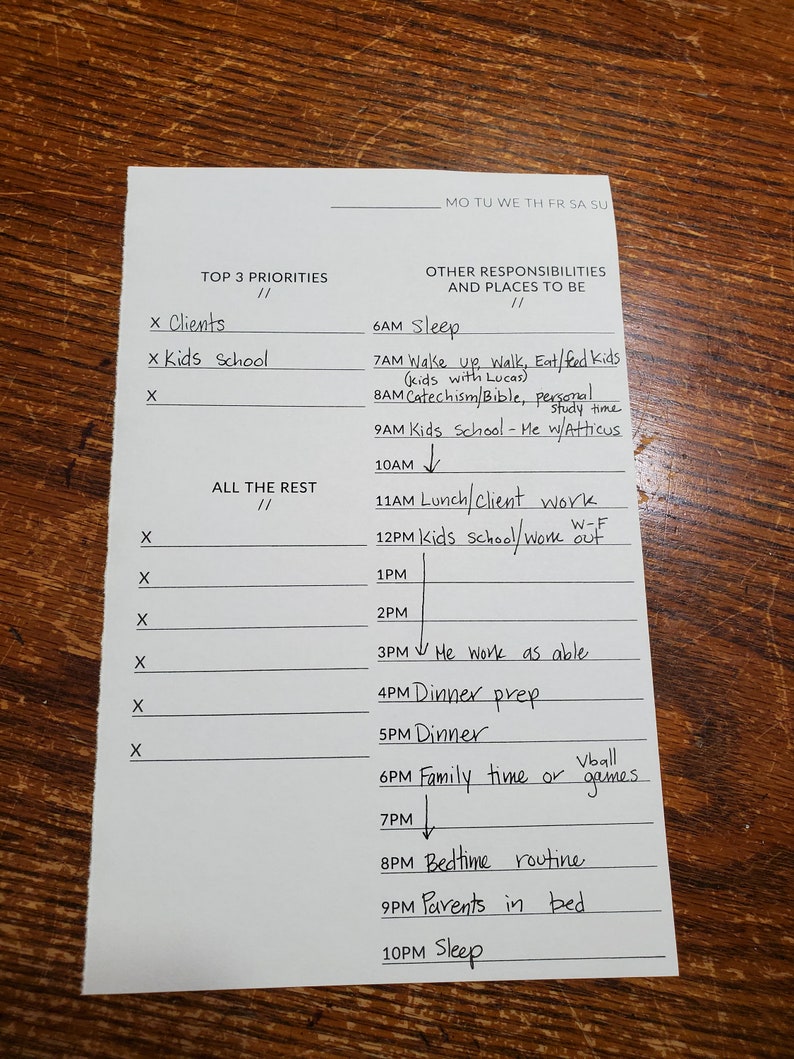 MO TU WE TH FR SA SU
TOP 3 PRIORITIES
//
X Clients
X Kids School
X
ALL THE REST
//
X
X
X
X
X
X
OTHER RESPONSIBILITIES
AND PLACES TO BE
//
6AM Sleep
7AM Wake up, Walk, Eat/feed Kids
(kids with Lucas)
8AM Catechism/Bible, personal
study time
9AM Kids School - Me w/Atticus
10AM ↓
11AM Lunch/Client work
W-F
12PM Kids School/Work out
1PM
2PM
3PM Me work as able
4PM Dinner prep
5PM Dinner
Vball
6PM Family time or games
7PM ↓
8PM Bedtime routine
9PM Parents in bed
10PM Sleep